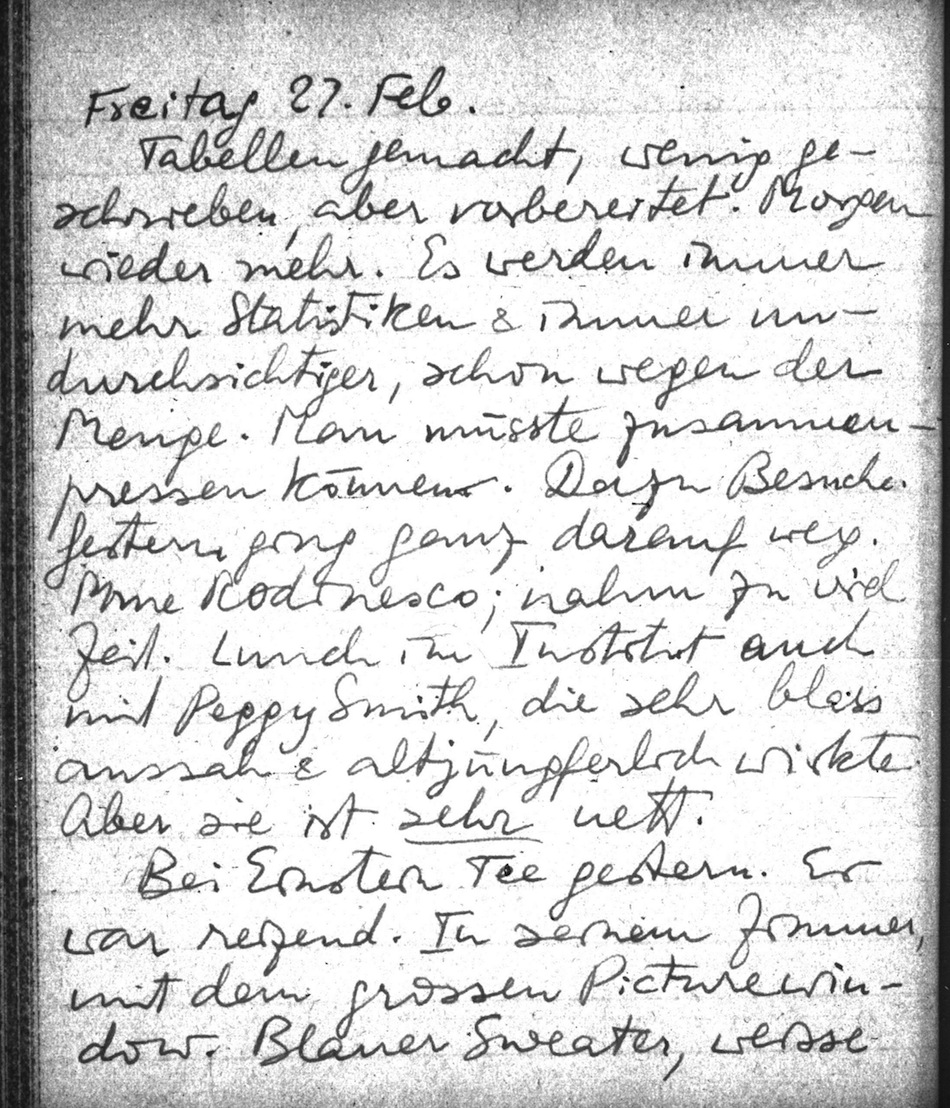 Freitag 27. Feb.
Tabellen gemacht, wenig ge-
schrieben, aber vorbereitet. Morgen
wieder mehr. Es werden immer
mehr Statistiken & immer un-
durchsichtiger, schon wegen der
Menge. Man müsste zusammen-
pressen können. Dazu Besuche.
Gestern ging ganz darauf weg.
Mme Rodinesco; nahm zu viel
Zeit. Lunch im Institut auch
mit Peggy Smith, die sehr blass
aussah & altjüngferlich wirkte.
Aber sie ist sehr nett.
Bei Einstein Tee gestern. Er
war reizend. In seinem Zimmer,
mit dem grossen Picturewin-
dow. Blauer Sweater, weisse